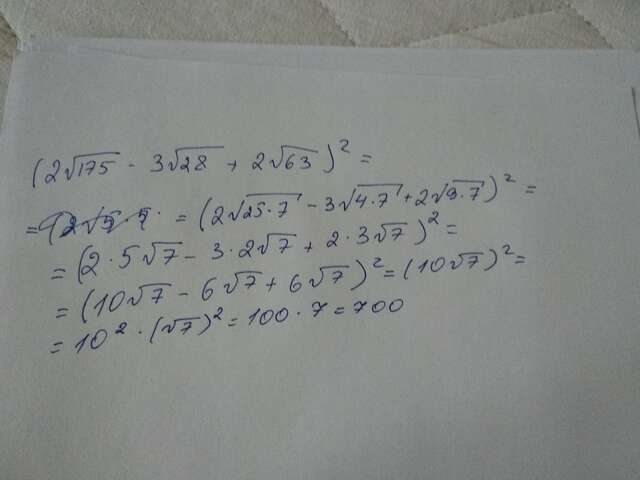 (2√175 - 3√28 + 2√63)² =
= (2√5 = (2√25·7 - 3√4·7 + 2√9·7)² =
= (2·5√7 - 3·2√7 + 2·3√7)² =
= (10√7 - 6√7 + 6√7)² = (10√7)² =
= 10² · (√7)² = 100·7 = 700